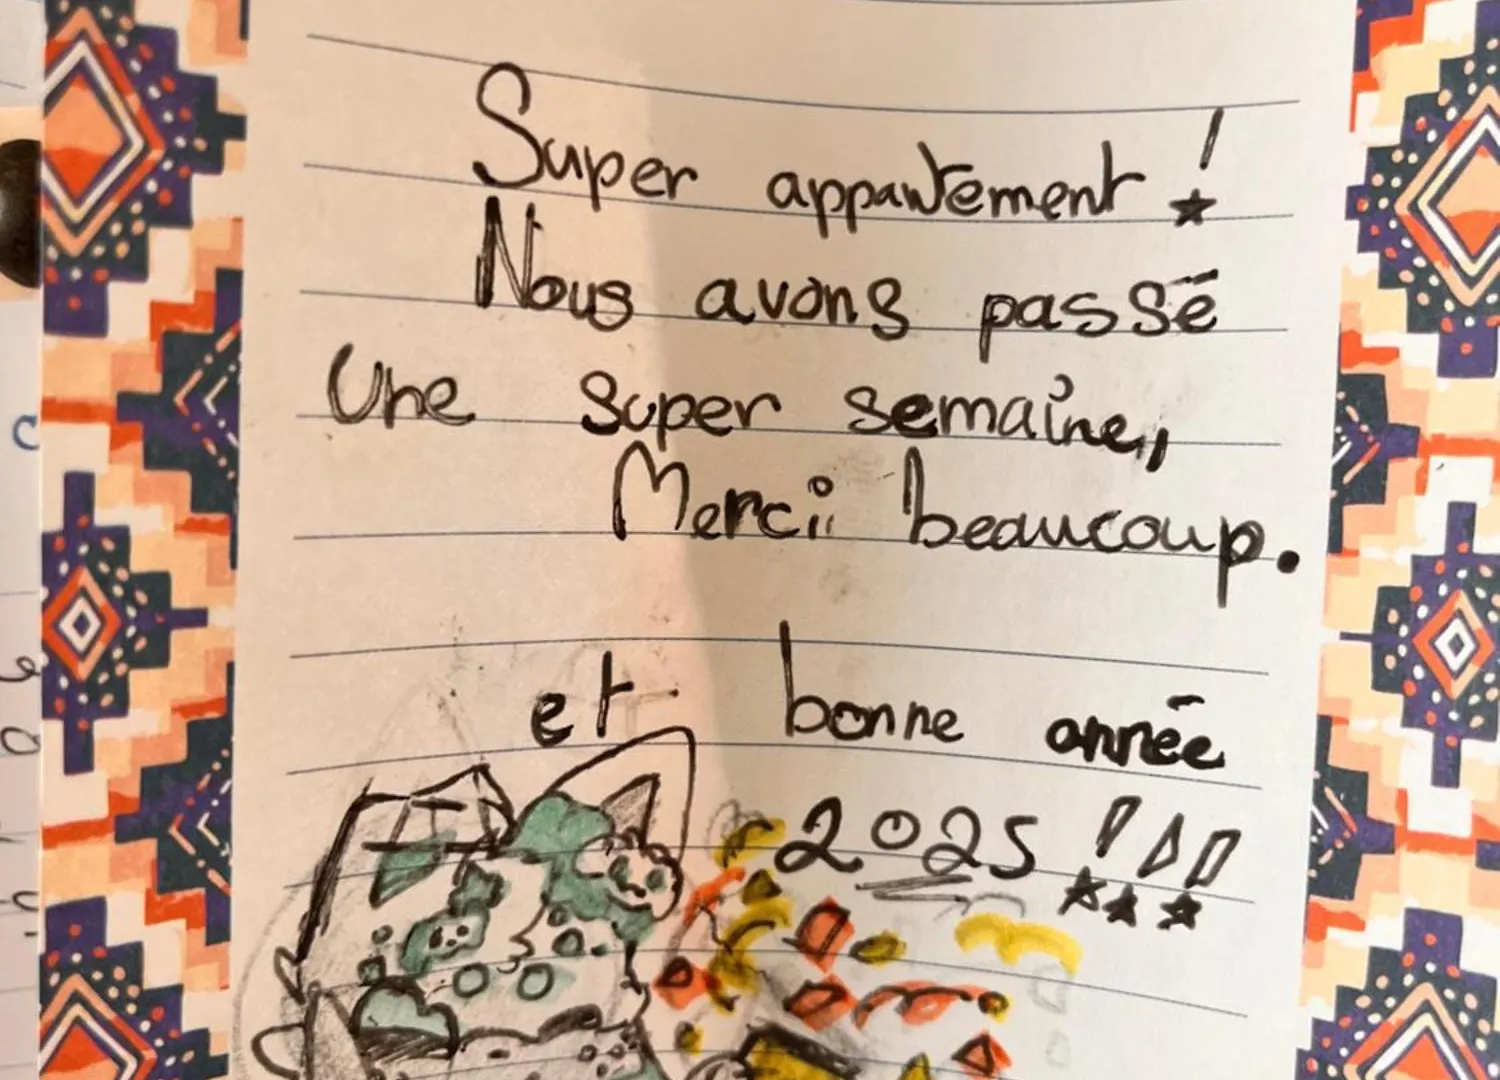 Super appartement !
Nous avons passé
Une super semaine,
Merci beaucoup.
et bonne année
2025 !!!